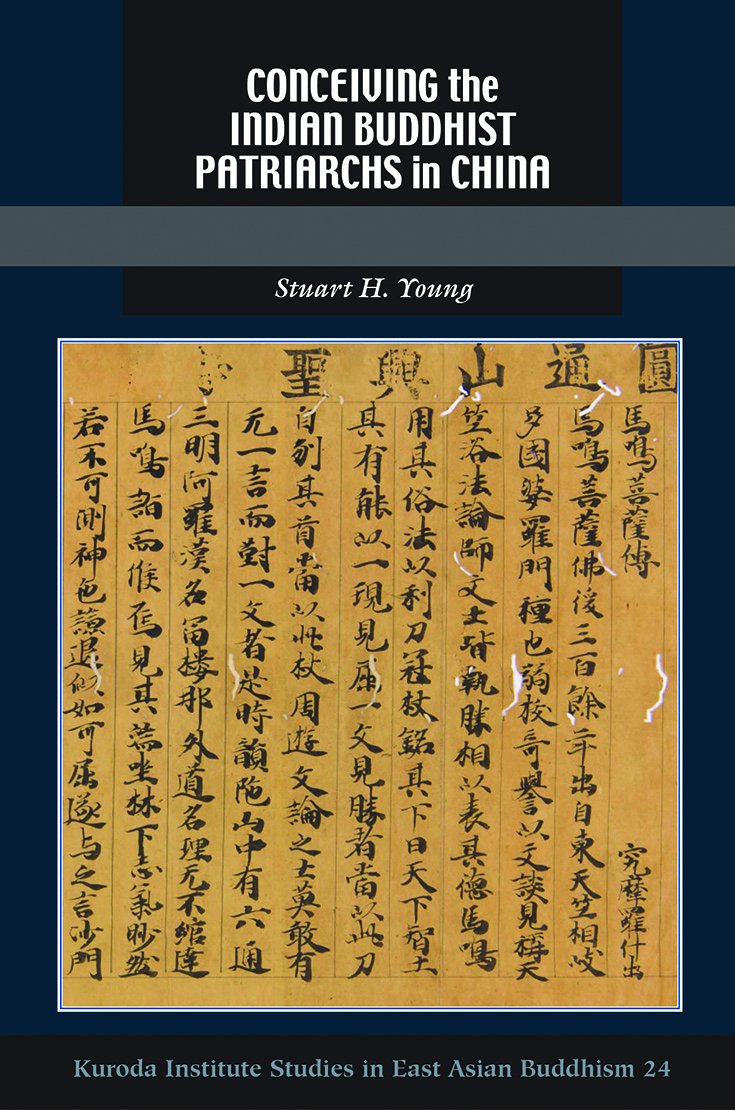 CONCEIVING the
INDIAN BUDDHIST
PATRIARCHS in CHINA
Stuart H. Young
圓通山興聖
馬鳴菩薩傳 究摩羅什出
馬鳴菩薩佛後三百餘年出自東天竺相岐
多國婆羅門種也弱挍奇譽以文談見稱天
竺浴法論師文士皆執勝相以表其德馬鳴
用其俗法以利刀冠杖銘其下曰天下智士
其有能以一現見屈一文見勝者當以此刀
自刎其首當以此杖周遊文論之士莫敢有
元一言而對一文者是時韻陁山中有六通
三明阿羅漢名冨樓那外道名理无不綰達
馬鳴詣而候焉見其端坐林下志氣眇然
若不可測神色謙退似如可屈遂与之言沙門
Kuroda Institute Studies in East Asian Buddhism 24